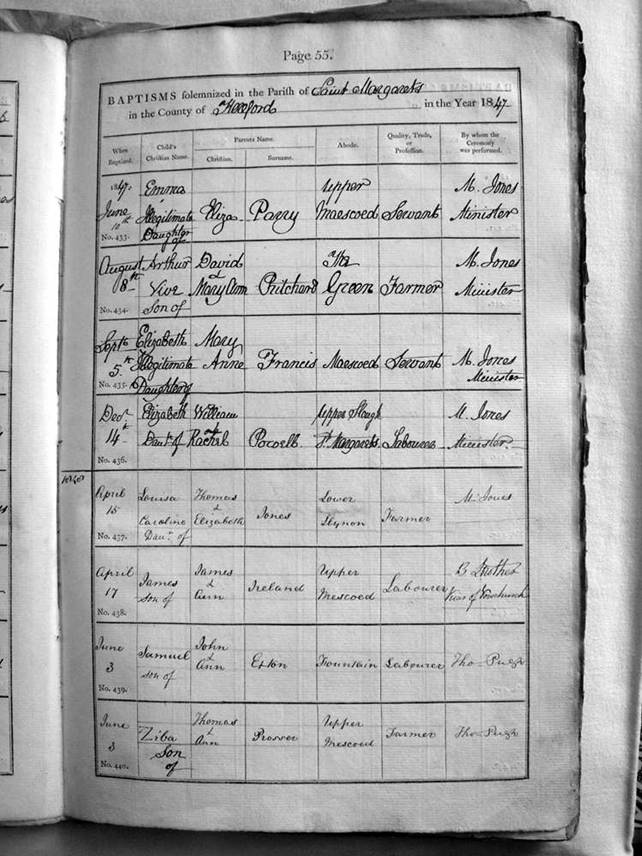 Page 55.
BAPTISMS solemnized in the Parish of Saint Margarets
in the County of Hereford in the Year 1847
When Baptized. Child's Christian Name. Parents Name. Christian. Surname. Abode. Quality, Trade, or Profession. By whom the Ceremony was performed.
1847. Emma Upper M. Jones
June Illegitimate Eliza Parry Maescoed Servant Minister
10th Daughter of
No. 433.
August Arthur David The M. Jones
8th & Mary Ann Pritchard Green Farmer Minister
Son of
No. 434.
Septr Elizabeth Mary
5th Illegitimate Anne Francis Maescoed Servant M. Jones
No. 435. Daughter of Minister
Decr Elizabeth William Upper Slough M. Jones
14th Daur of & Rachel Powell St Margarets Labourer Minister
No. 436.
1848
April Louisa Thomas Lower M. Jones
15 Caroline & Elizabeth Jones Farmer
Daur of
No. 437.
April James James Upper
17 son of & Ann Ireland Mescoed Labourer Vicar of Vowchurch
No. 438.
June Samuel John
3 son of & Ann Exton Fountain Labourer Thos Pugh
No. 439.
June Thomas Upper
3 Ziba & Ann Prosser Mescoed Farmer Thos Pugh
Son
of
No. 440.